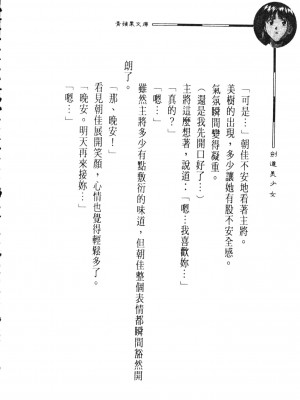 青檸果文庫
劍道美少女
「可是…」朝佳不安地看著主將。
美樹的出現，多少讓她有股不安全感。
氣氛瞬間變得凝重。
（還是我先開口好了…）
主將這麼想著，說道：「嗯…我喜歡妳…」
「真的？」
「嗯…」
雖然主將多少有點敷衍的味道，但朝佳整個表情都瞬間豁然開
朗了。
「那、晚安！」
看見朝佳展開笑顏，心情也覺得輕鬆多了。
「晚安。明天再來接妳…」
「嗯…」